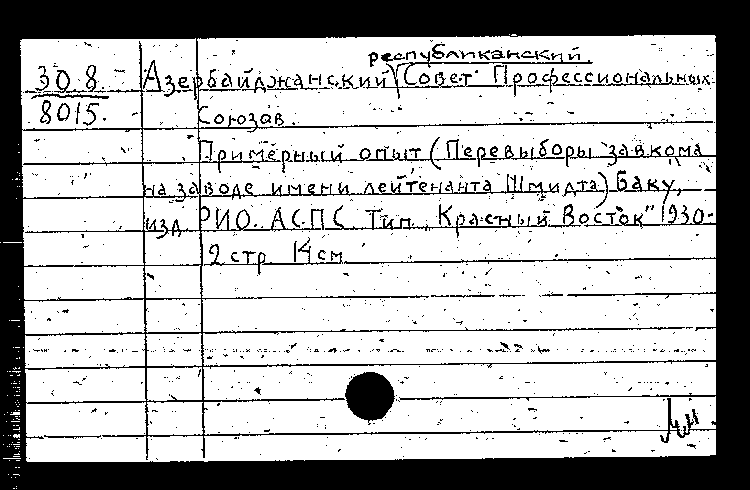 республиканский
30 8 Азербайджанский Совет Профессиональных
8015. Союзав.
Примерный опыт (Перевыборы завкома
на заводе имени лейтенанта Шмидта) Баку,
изд РИО. АСПС Тип „Красный Восток" 1930-
2 стр 14 см